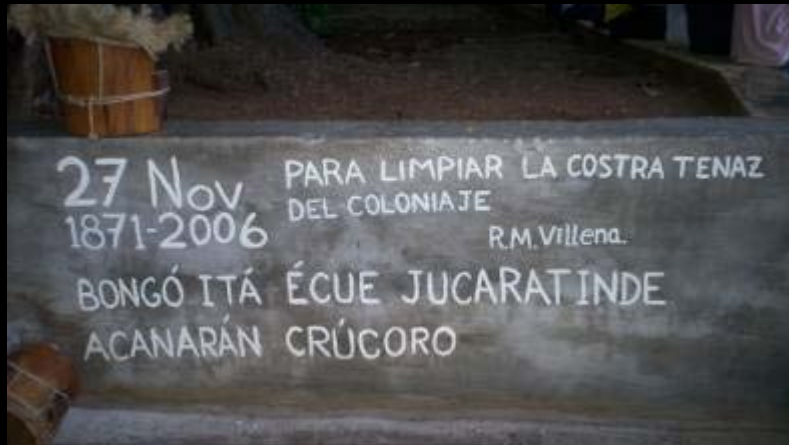 27 Nov
1871-2006
PARA LIMPIAR LA COSTRA TENAZ
DEL COLONIAJE
R.M.Villena.
BONGÓ ITÁ ÉCUE JUCARATINDE
ACANARÁN CRÚCORO